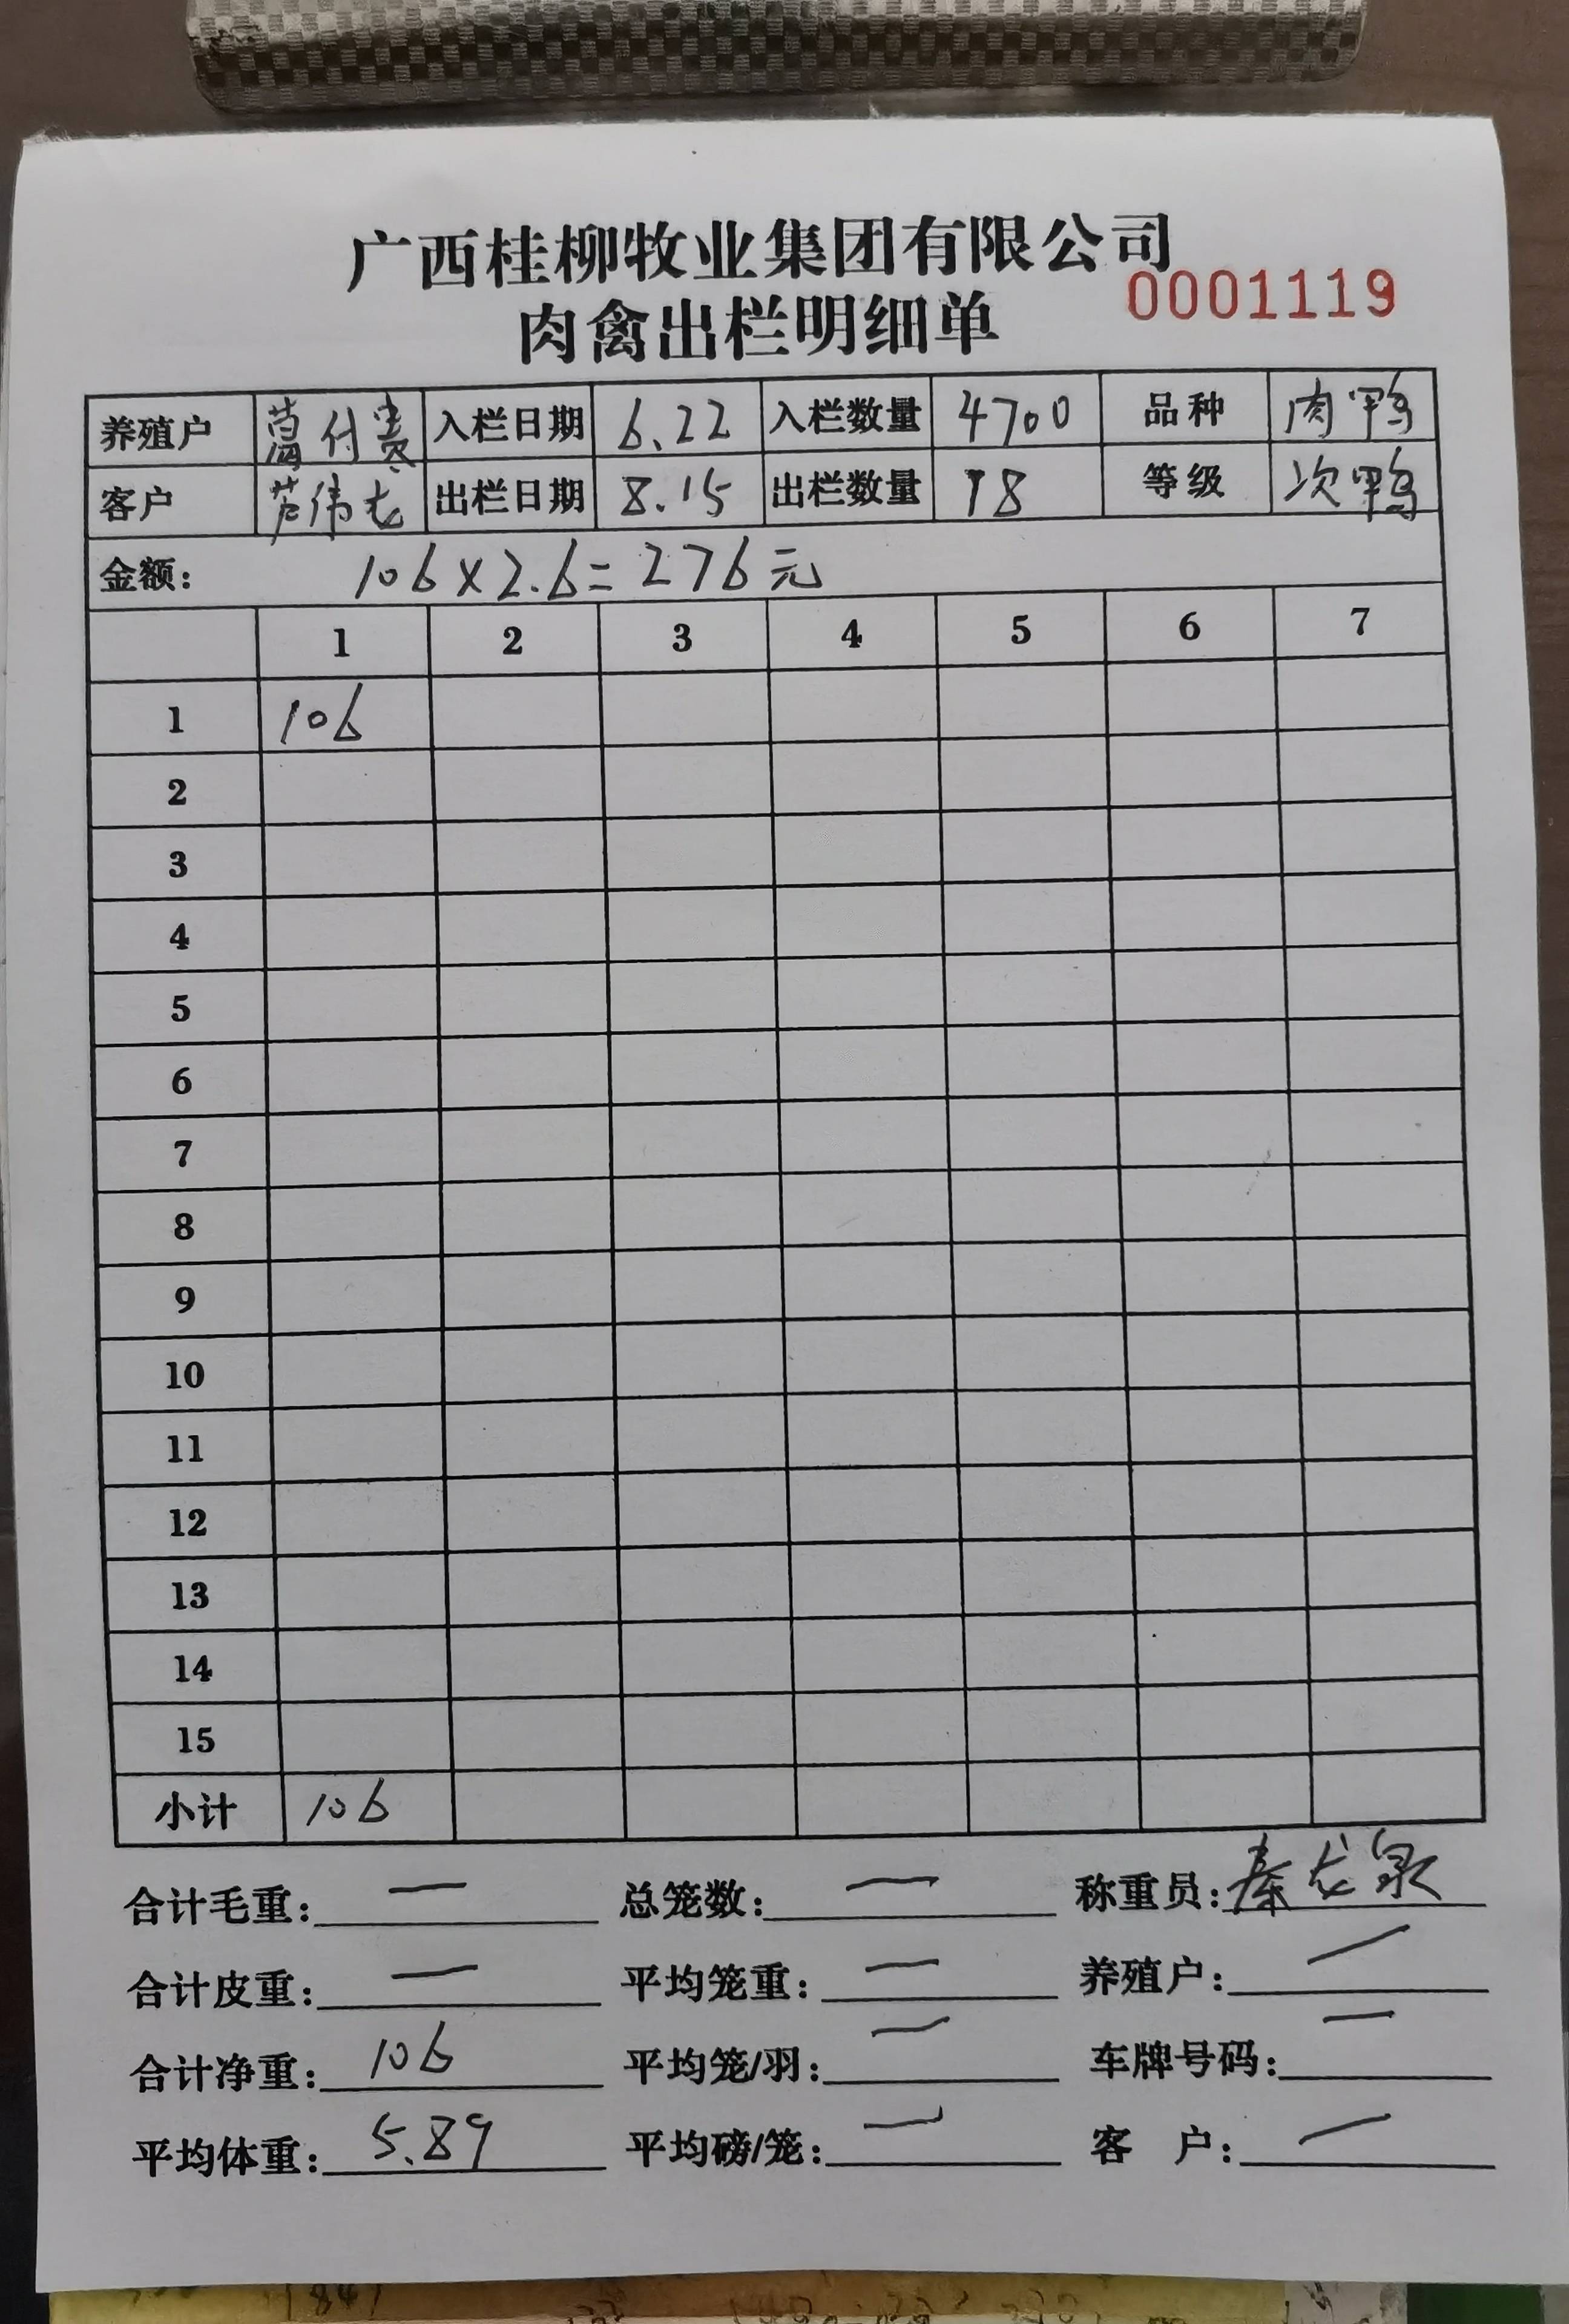 广西桂柳牧业集团有限公司
0001119
肉禽出栏明细单
养殖户 付 入栏日期 6.22 入栏数量 4700 品种 肉鸭
客户 芦伟龙 出栏日期 8.15 出栏数量 18 等级 次鸭
金额: 106×2.6=276元
1 2 3 4 5 6 7
1 106
2
3
4
5
6
7
8
9
10
11
12
13
14
15
小计 106
合计毛重: — 总笼数: — 称重员: 秦龙泉
合计皮重: — 平均笼重: — 养殖户: —
合计净重: 106 平均笼/羽: — 车牌号码: —
平均体重: 5.89 平均磅/笼: — 客 户: —